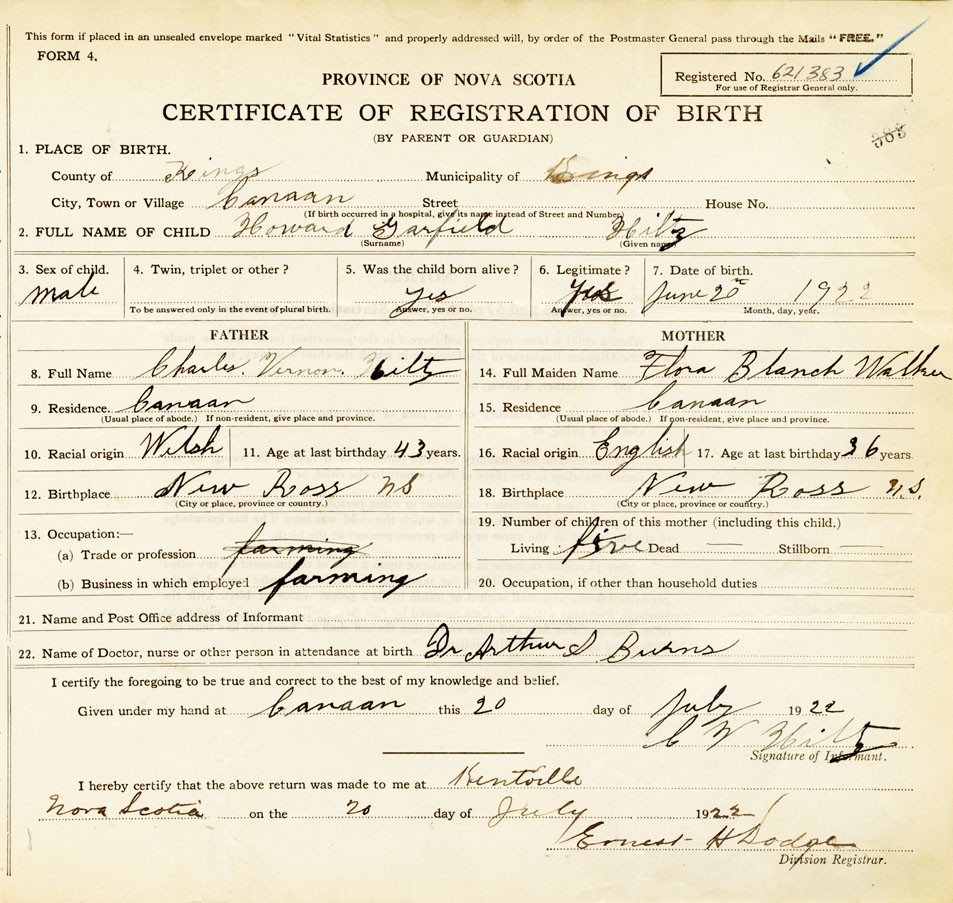 This form if placed in an unsealed envelope marked "Vital Statistics" and properly addressed will, by order of the Postmaster General pass through the Mails "FREE."
FORM 4.
Registered No. 621383
For use of Registrar General only.
PROVINCE OF NOVA SCOTIA
CERTIFICATE OF REGISTRATION OF BIRTH
(BY PARENT OR GUARDIAN)
383
1. PLACE OF BIRTH.
County of Kings Municipality of Kings
City, Town or Village Canaan Street House No.
(If birth occurred in a hospital, give its name instead of Street and Number)
2. FULL NAME OF CHILD Howard Garfield Hiltz
(Surname) (Given name)
3. Sex of child. 4. Twin, triplet or other? 5. Was the child born alive? 6. Legitimate? 7. Date of birth.
Male yes Yes June 20th 1922
To be answered only in the event of plural birth. Answer, yes or no. Answer, yes or no. Month, day, year.
FATHER MOTHER
8. Full Name Charles. Vernon. Hiltz 14. Full Maiden Name Flora Blanch Walker
9. Residence. Canaan 15. Residence Canaan
(Usual place of abode.) If non-resident, give place and province. (Usual place of abode.) If non-resident, give place and province.
10. Racial origin Welsh 11. Age at last birthday 43 years. 16. Racial origin English 17. Age at last birthday 36 years.
12. Birthplace New Ross NS 18. Birthplace New Ross N.S.
(City or place, province or country.) (City or place, province or country.)
13. Occupation:— 19. Number of children of this mother (including this child.)
(a) Trade or profession farming Living five Dead — Stillborn —
(b) Business in which employed farming 20. Occupation, if other than household duties
21. Name and Post Office address of Informant
22. Name of Doctor, nurse or other person in attendance at birth Dr Arthur S Burns
I certify the foregoing to be true and correct to the best of my knowledge and belief.
Given under my hand at Canaan this 20 day of July 1922
C V Hiltz
Signature of Informant.
I hereby certify that the above return was made to me at Kentville
Nova Scotia on the 20 day of July 1922
Ernest H Dodge
Division Registrar.